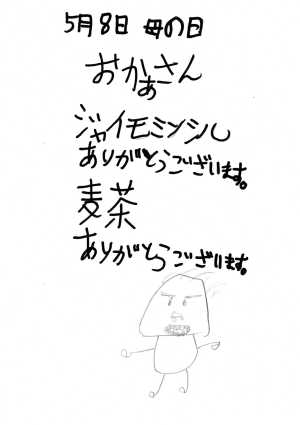 5月8日 母の日
おかあさん
ジャイモミンシル
ありがとうございます。
麦茶
ありがとうございます。